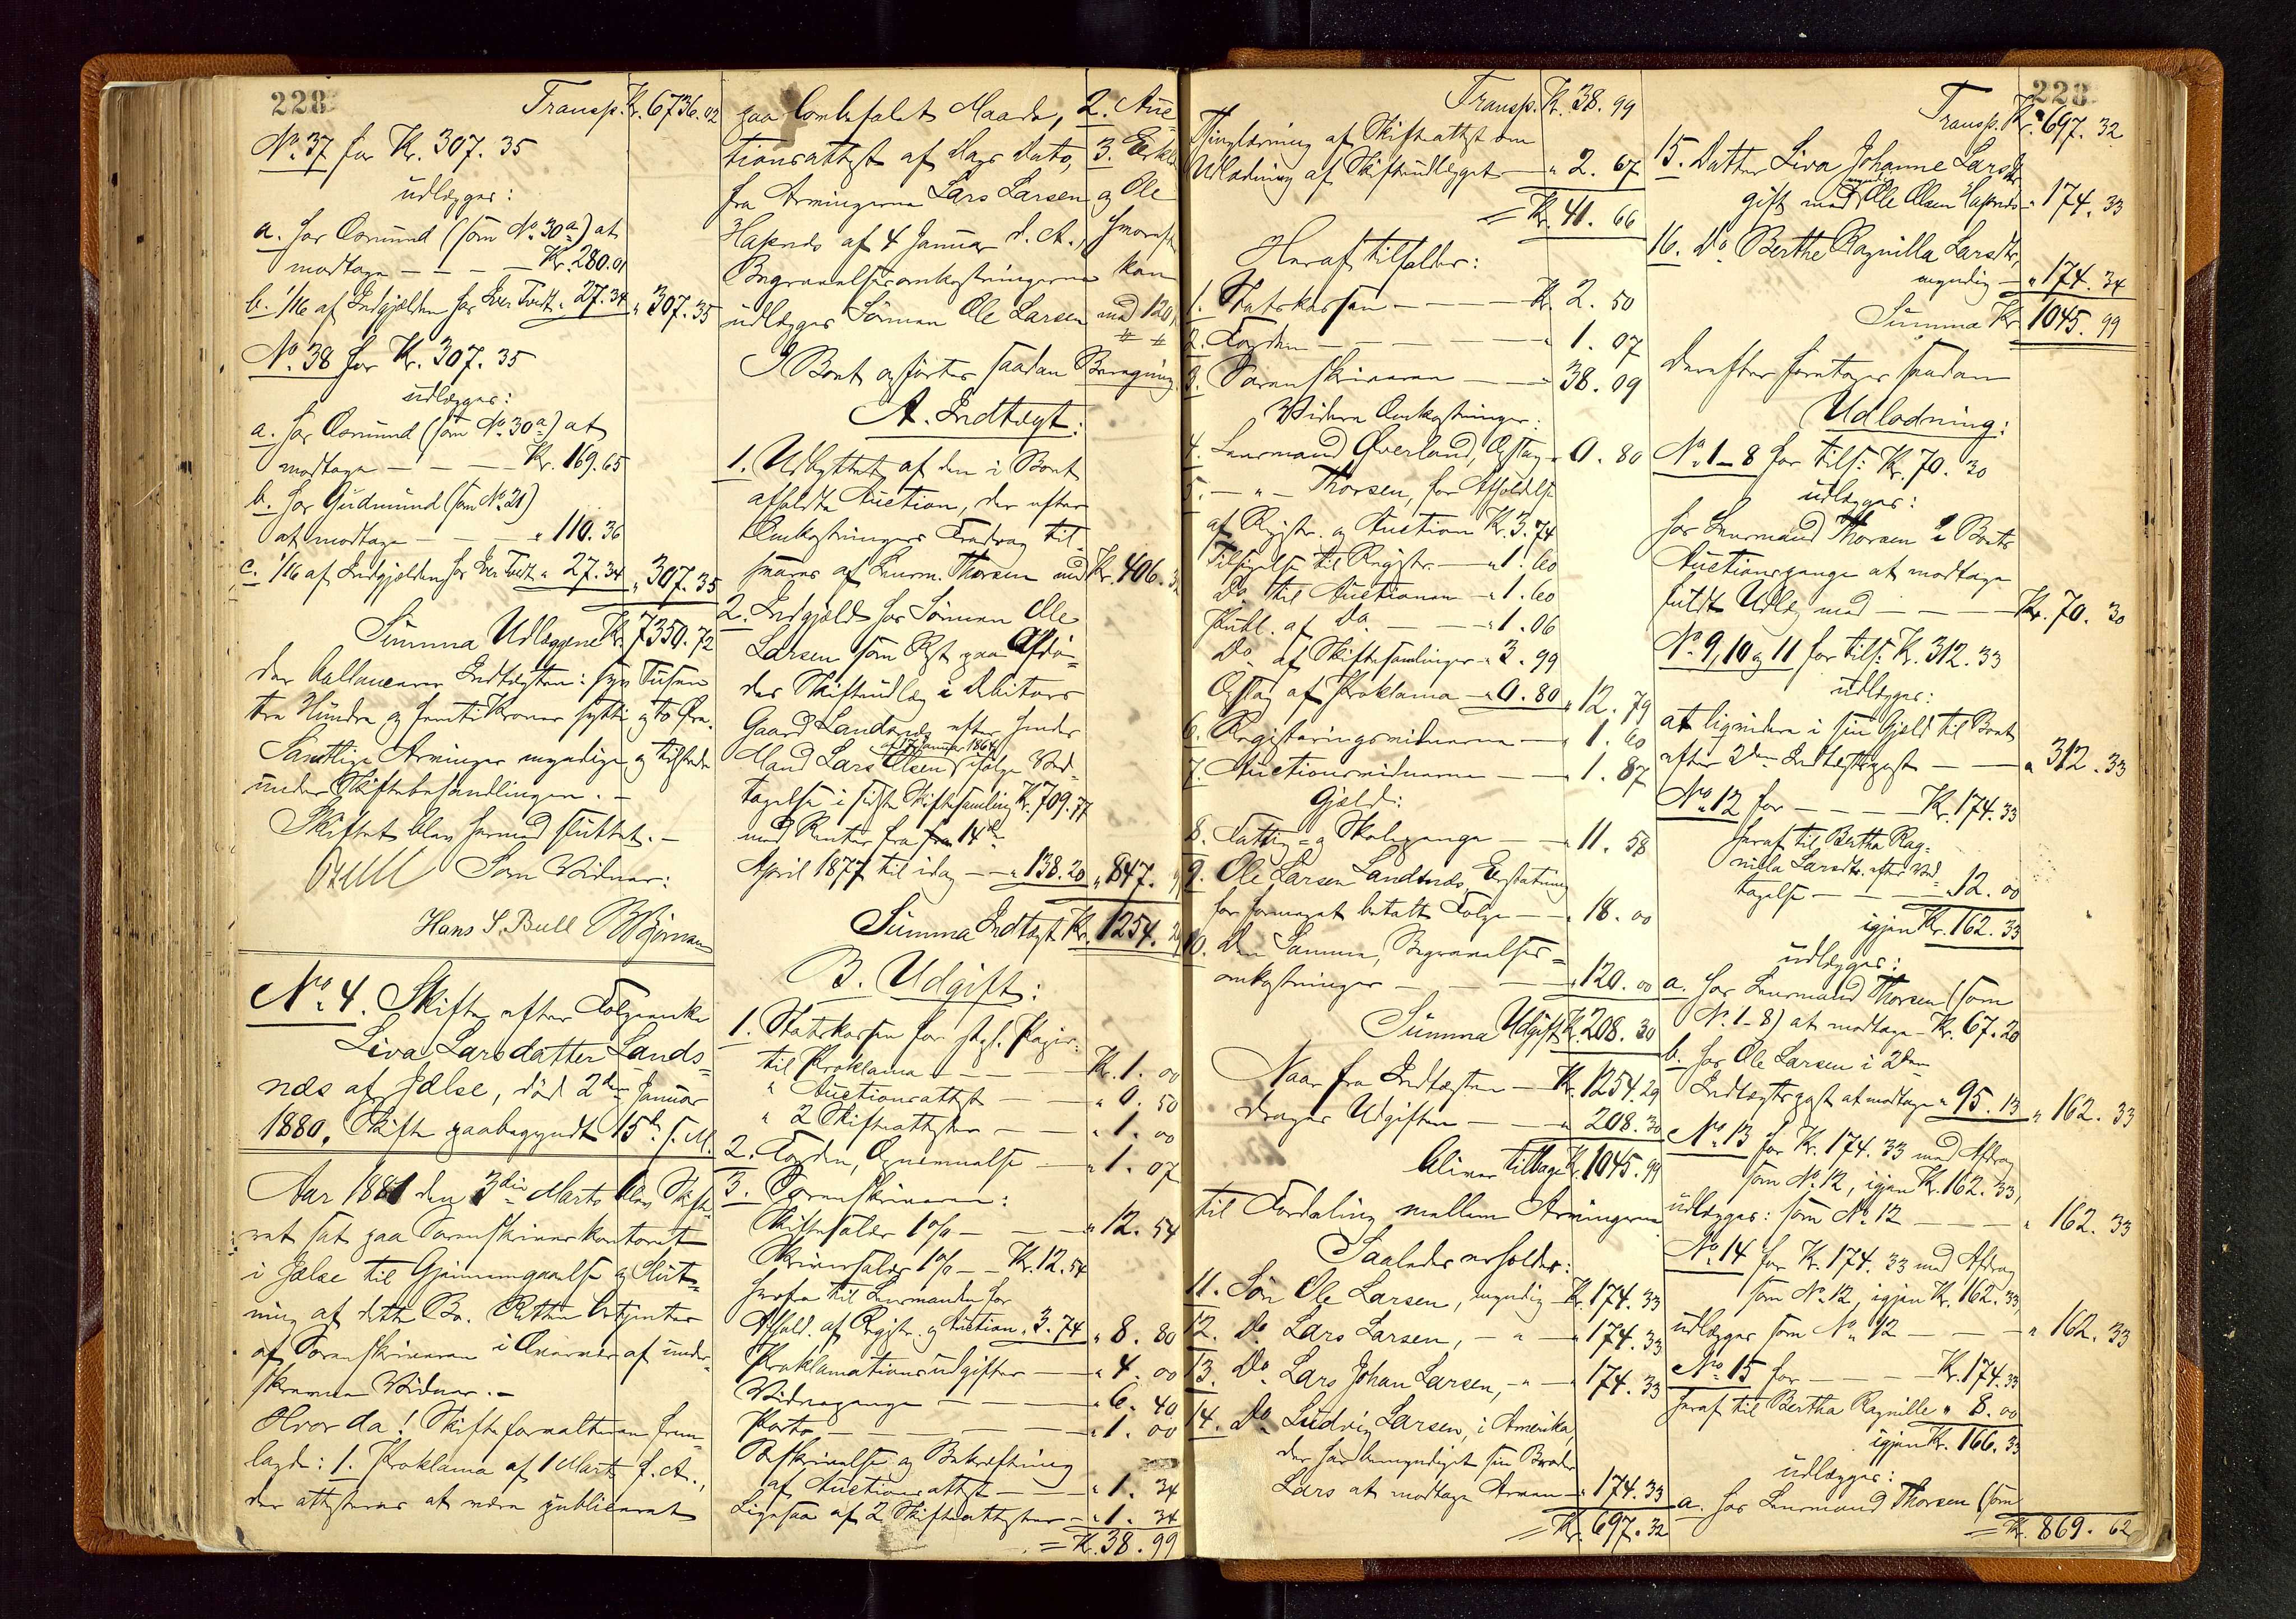 228
Transp. Kr. 6736.02
No. 37 for Kr. 307.35
udlægges:
a. hos Osmund (som No. 30a) at
modtage — — — Kr. 280.01
b. 1/16 af Indgjælden hos Iver Tvedt " 27.34 " 307.35
No. 38 for Kr. 307.35
udlægges:
a. hos Osmund (som No. 30a) at
modtage — — — Kr. 169.65
b. hos Gudmund (som No. 21)
at modtage — — — " 110.36
c. 1/16 af Indgjælden hos Iver Tvedt " 27.34 " 307.35
Summa Udlæggene Kr. 7350.72
der ballancerer Indtægten: syv Tusen
tre Hundre og femti Kroner sytti og to Øre.
Samtlige Arvinger myndige og tilstede
under Skiftebehandlingen. —
Skiftet blev hermed sluttet. —
Bull Som Vidner:
Hans S. Bull
No. 4. Skifte efter Folgeenke
Siva Larsdatter Lands-
næs af Jælse, död 2den Januar
1880. Skifte paabegyndt 15de s. M.
Aar 1881 den 3die Marts blev Skifte-
ret sat paa Sorenskriverkontoret
i Jælse til Gjennemgaaelse og Slut-
ning af dette Bo. Retten betjentes
af Sorenskriveren i Overvær af under-
skrevne Vidner. —
Hvor da! Skifteforvalteren frem-
lagde: 1. Proklama af 1 Marts f. A.,
der attesteres at være publiceret
paa lovbefalet Maade, 2. Auc-
tionsattest af Dags Dato, 3. Erklæ.
fra Arvingerne Lars Larsen og Ole
Hapnes af 4 Januar d. A.,
Begravelsesomkostningerne kan
udlægges Sönnen Ole Larsen med 120,
I Boet opförtes saadan Beregning.
A. Indtægt:
1. Udbyttet af den i Boet
afholdte Auction, der efter
Omkostningers Fradrag til-
svares af Lensm. Thorsen med Kr. 406.32
2. Indgjæld hos Sönnen Ole
Larsen som Rest paa Afdö-
des Skifteudlæg i Debitors
Gaard Landsnæs efter hendes
af 17 Januar 1864
Mand Lars Olsen ifölge Ved-
tagelse i sidste Skiftesamling Kr. 709.77
med Renter fra fra 14de
April 1877 til idag — " 138.20 " 847.97
Summa Indtægt Kr. 1254.29
B. Udgift:
1. Statskassen for stpl. Papir:
til Proklama — — — Kr. 1.00
" Auctionsattest — — " 0.50
" 2 Skifteattester — — " 1.00
2. Fogden, Opnævnelse — " 1.07
3. Sorenskriveren:
Skiftesalær 1% — — " 12.54
Skriversalær 1% — Kr. 12.54
herfra til Lensmanden for
Afhold. af Registr. og Auction " 3.74 " 8.80
Proklamationsudgifter — " 4.00
Vidnepenge — — — " 6.40
Porto — — — — " 1.00
Beskrivelse og Bekræftning
af Auctionsattest — — " 1.34
Ligesaa af 2 Skifteattester — " 1.34
= Kr. 38.99
Transp. Kr. 38.99
Thinglæsning af Skifteattest om
Udlodning af Skifteudlægget — " 2.67
= Kr. 41.66
Heraf tilfalder:
1. Statskassen — — — Kr. 2.50
2. Fogden — — — — " 1.07
3. Sorenskriveren — — " 38.09
Videre Omkostninger:
4. Lensmand Øverland, Opslag " 0.80
5. — " — Thorsen, for Afholdelse
af Registr. og Auction Kr. 3.74
Tilsigelse til Registr. — " 1.60
Do. til Auctionen — " 1.60
Publ. af Do. — — " 1.06
Do. af Skiftesamlinger " 3.99
Opslag af Proklama — " 0.80 " 12.79
6. Registeringsvidnerne — " 1.60
7. Auctionsvidnerne — — " 1.87
Gjæld:
8. Fattig- og Skolepenge — — " 11.58
9. Ole Larsen Landsnæs, Erstatning
for formeget betalt Folge — " 18.00
10. Den Samme, Begravelses-
omkostninger — — — " 120.00
Summa Udgift Kr. 208.30
Naar fra Indtægten — Kr. 1254.29
drages Udgiften — — " 208.30
bliver tilbage Kr. 1045.99
til Fordeling mellem Arvingerne
Saaledes erholder:
11. Sön Ole Larsen, myndig — Kr. 174.33
12. Do. Lars Larsen, — " — " 174.33
13. Do. Lars Johan Larsen, — " — " 174.33
14. Do. Ludvig Larsen, i Amerika,
der har bemyndiget sin Broder
Lars at modtage Arven — " 174.33
= Kr. 697.32
228
Transp. Kr. 697.32
15. Datter Siva Johanne Larsdtr.
gift med myndige Ole Olsen Hapnes " 174.33
16. Do. Berthe Ragnilla Larsdtr,
myndig — " 174.34
Summa Kr. 1045.99
Derefter foretoges saadan
Udlodning:
No. 1–8 for tils. Kr. 70.30
udlægges:
hos Lensmand Thorsen i Boets
Auctionspenge at modtage
fuldt Udlæg med — — — Kr. 70.30
No. 9, 10 og 11 for tils. Kr. 312.33
udlægges:
at liqvidere i sin Gjæld til Boet
efter 2den Indtægtspost — — " 312.33
No. 12 for — — — Kr. 174.33
heraf til Bertha Rag-
nilla Larsdtr. efter Ved-
tagelse — — — " 12.00
igjen Kr. 162.33
udlægges:
a. hos Lensmand Thorsen (som
No. 1–8) at modtage — Kr. 67.20
b. hos Ole Larsen i 2den
Indtægtspost at modtage " 95.13 " 162.33
No. 13 for Kr. 174.33 med Afdrag
som No. 12, igjen Kr. 162.33,
udlægges: som No. 12 — — — " 162.33
No. 14 for Kr. 174.33 med Afdrag
som No. 12, igjen Kr. 162.33,
udlægges som No. 12 — — — " 162.33
No. 15 for — — — Kr. 174.33
heraf til Bertha Ragnille " 8.00
igjen Kr. 166.33
udlægges:
a. hos Lensmand Thorsen (som
= Kr. 869.62